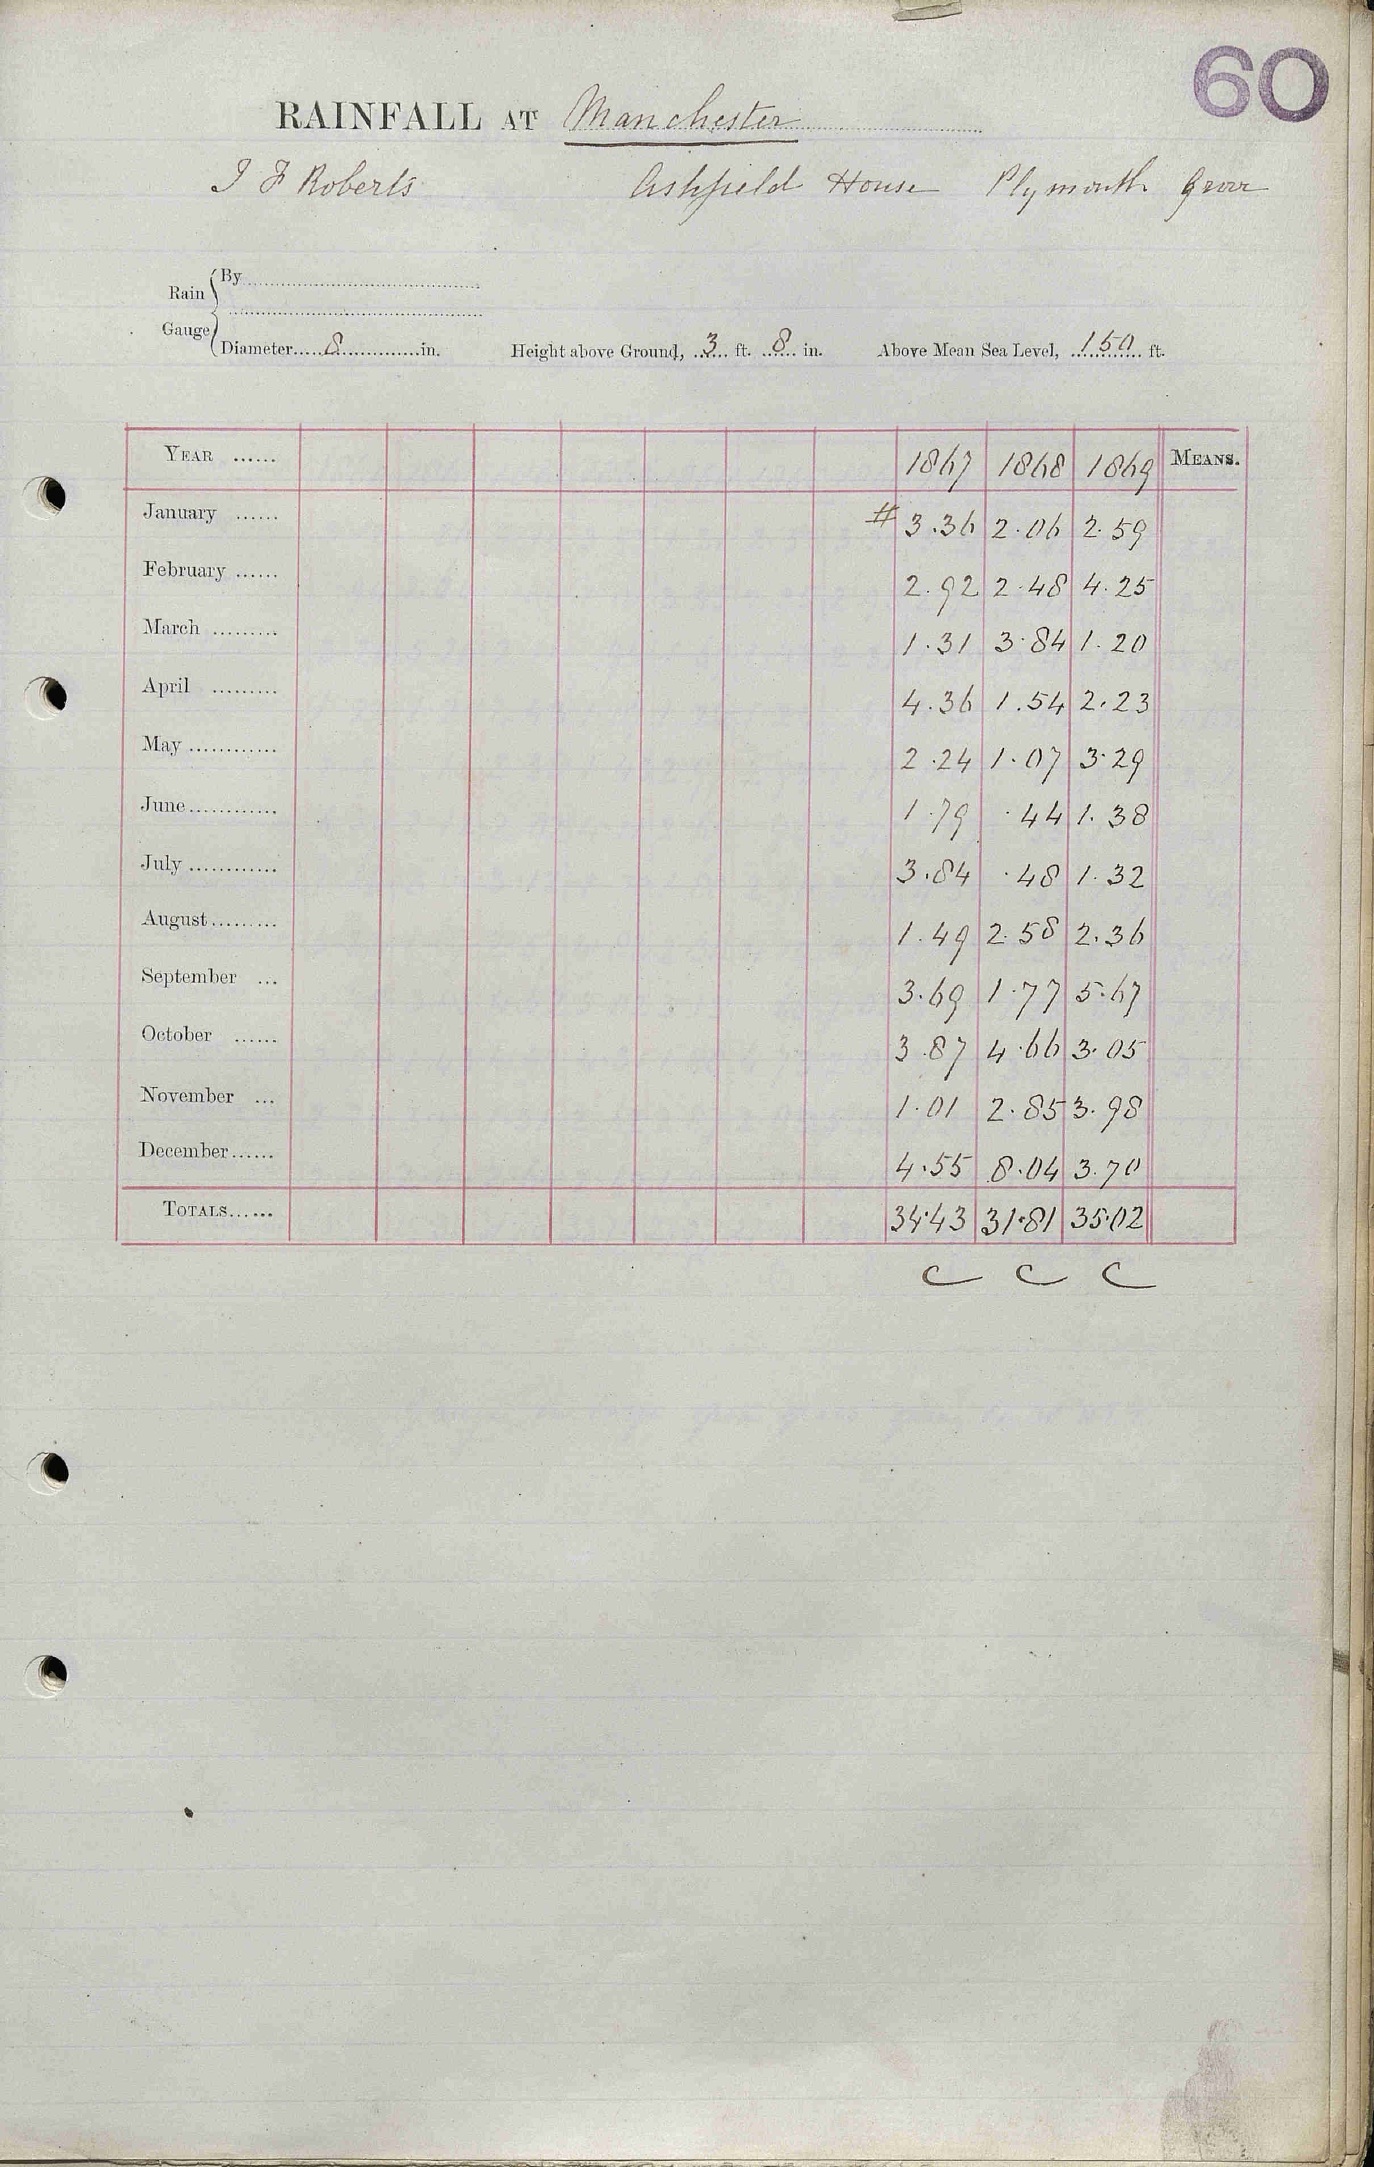 60
RAINFALL AT Manchester
J F Roberts Ashfield House Plymouth Grove
Rain Gauge
By
Diameter 8 in. Height above Ground, 3 ft. 8 in. Above Mean Sea Level, 150 ft.
YEAR ...... 1867 1868 1869 MEANS.
January ...... # 3.36 2.06 2.59
February ...... 2.92 2.48 4.25
March ......... 1.31 3.84 1.20
April ......... 4.36 1.54 2.23
May ............ 2.24 1.07 3.29
June ............ 1.79 .44 1.38
July ............ 3.84 .48 1.32
August ......... 1.49 2.58 2.36
September ... 3.69 1.77 5.67
October ...... 3.87 4.66 3.05
November ... 1.01 2.85 3.98
December ...... 4.55 8.04 3.70
TOTALS ...... 34.43 31.81 35.02
C C C